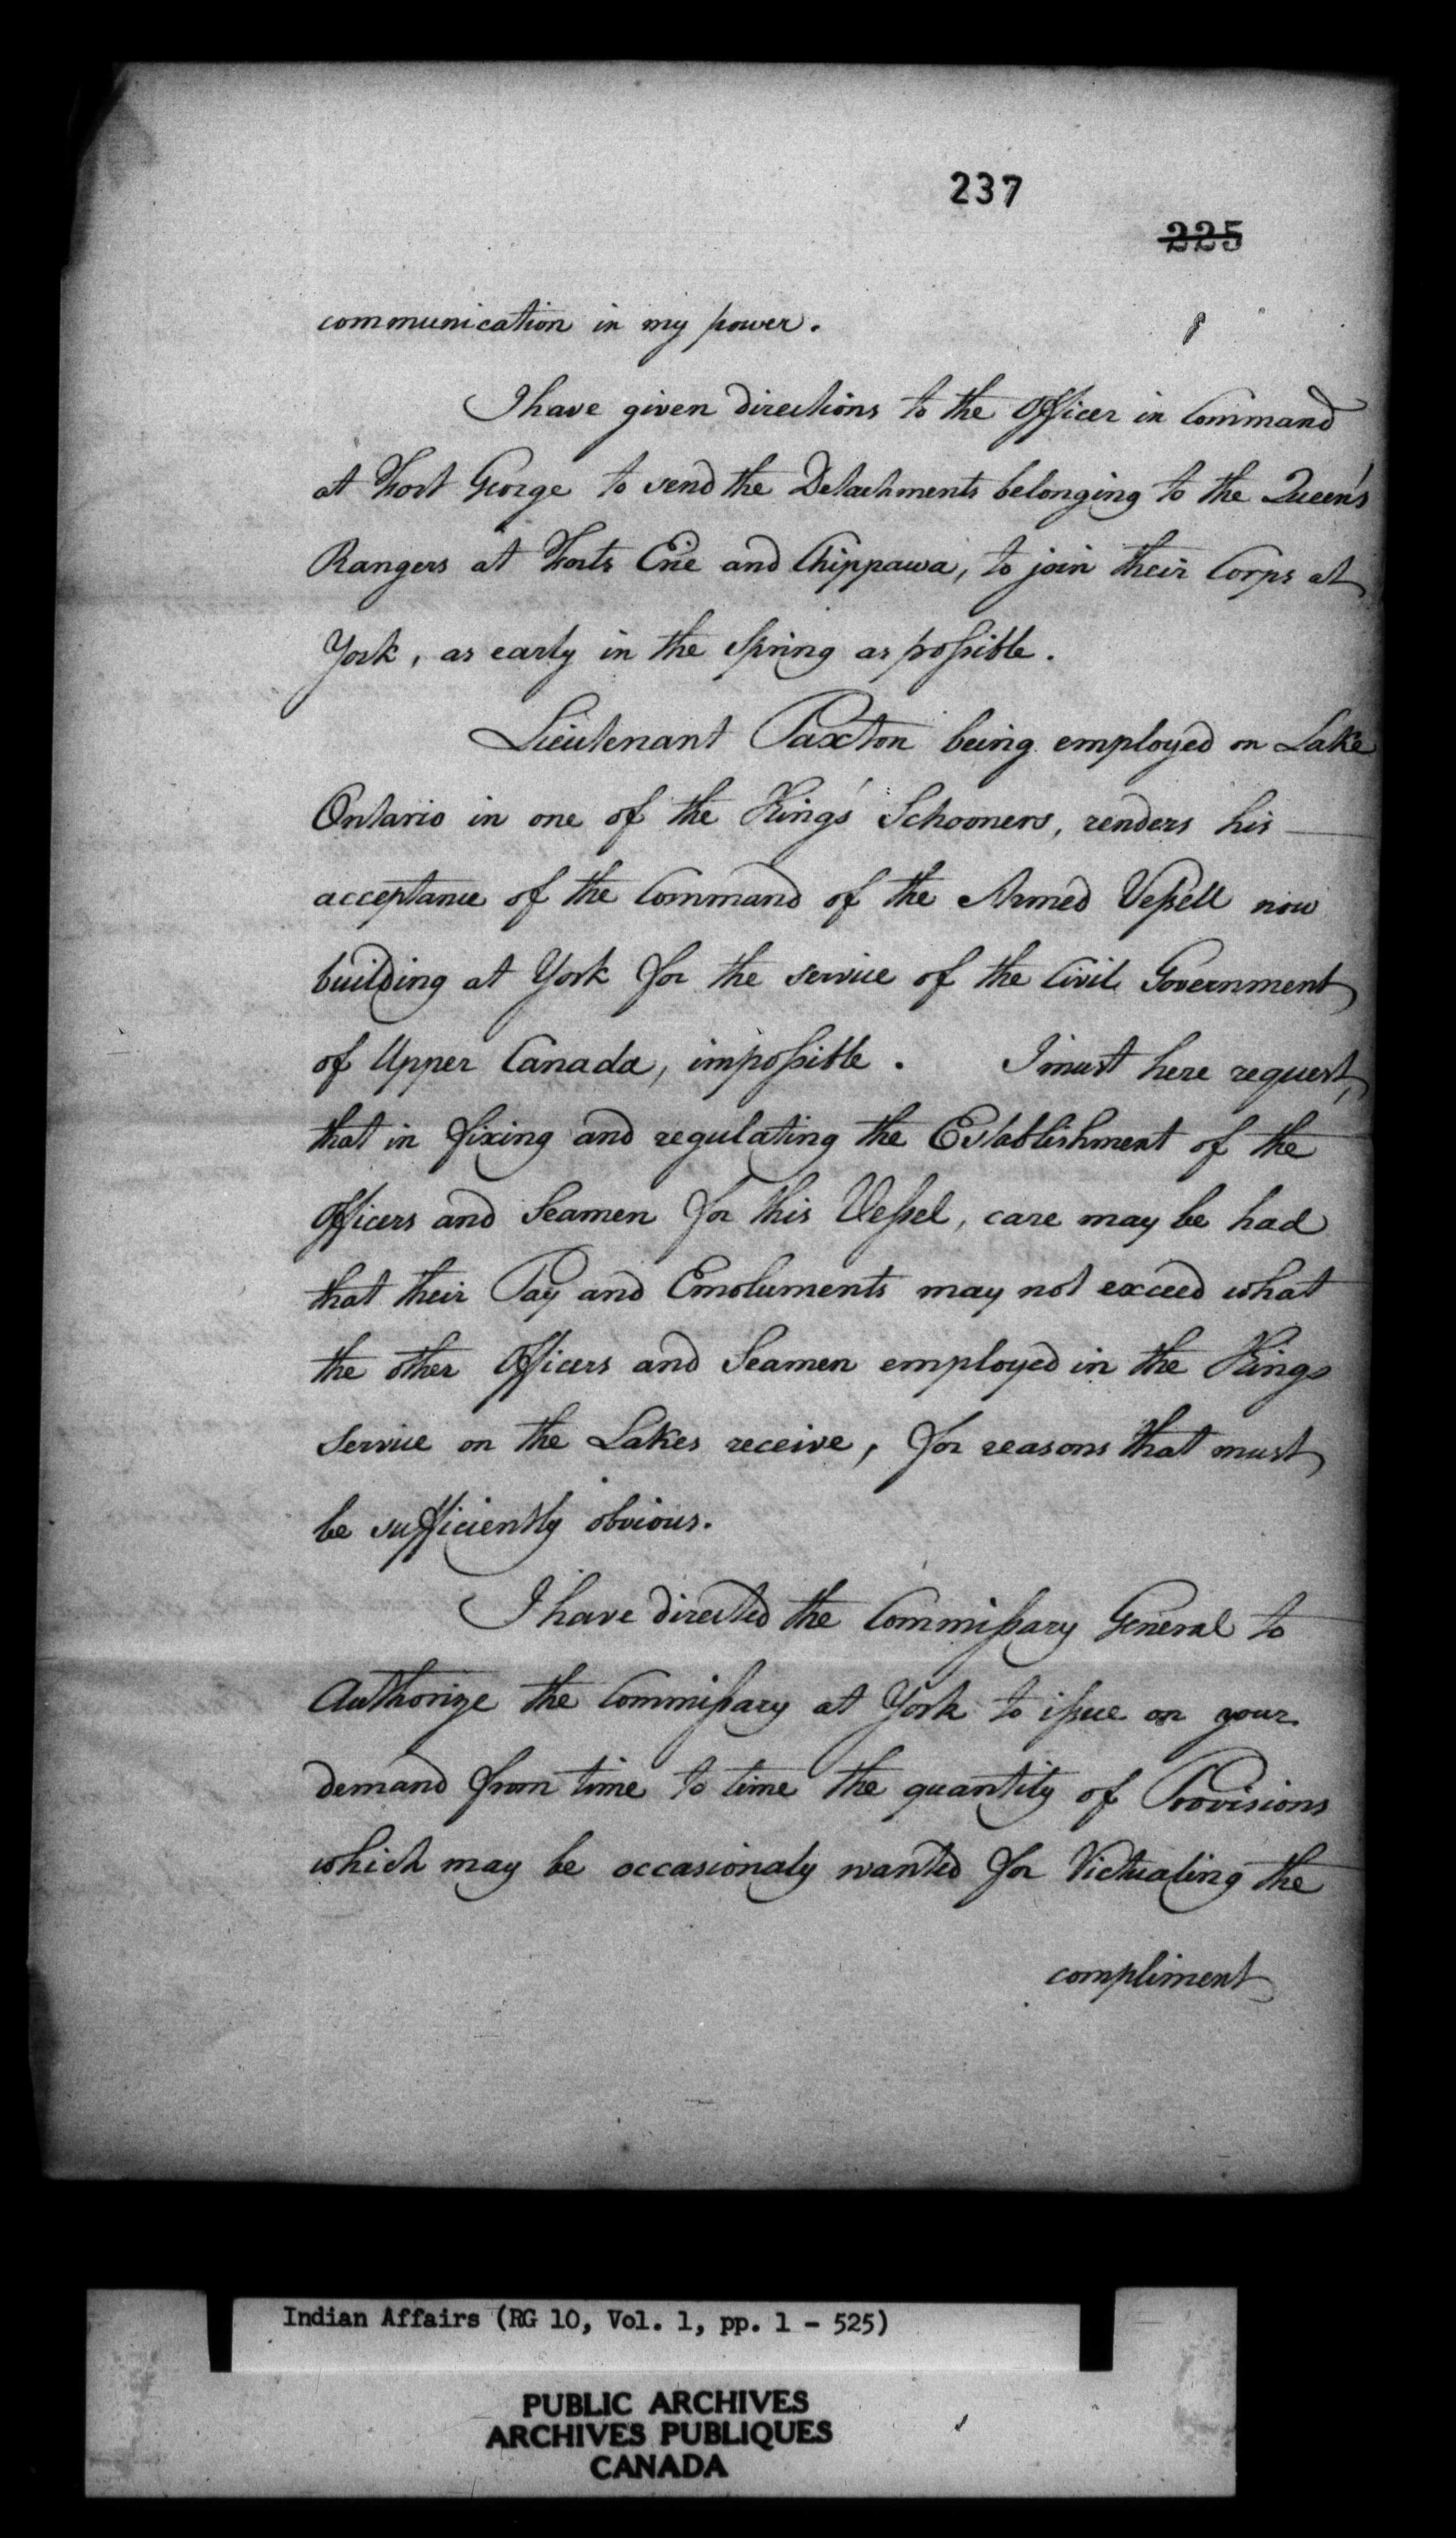 237
225
communication in my power.
I have given directions to the Officer in Command
at Fort George to send the Detachments belonging to the Queen's
Rangers at Forts Erie and Chippawa, to join their Corps at
York, as early in the Spring as possible.
Lieutenant Paxton being employed on Lake
Ontario in one of the King's Schooners, renders his
acceptance of the Command of the Armed Vessell now
building at York for the service of the Civil Government
of Upper Canada, impossible. I must here request,
that in fixing and regulating the Establishment of the
Officers and Seamen for this Vessel, care may be had
that their Pay and Emoluments may not exceed what
the other Officers and Seamen employed in the Kings
Service on the Lakes receive, for reasons that must
be sufficiently obvious.
I have directed the Commissary General to
Authorize the Commissary at York to issue on your
demand from time to time the quantity of Provisions
which may be occasionaly wanted for Victualing the
compliment
Indian Affairs (RG 10, Vol. 1, pp. 1 - 525)
PUBLIC ARCHIVES
ARCHIVES PUBLIQUES
CANADA